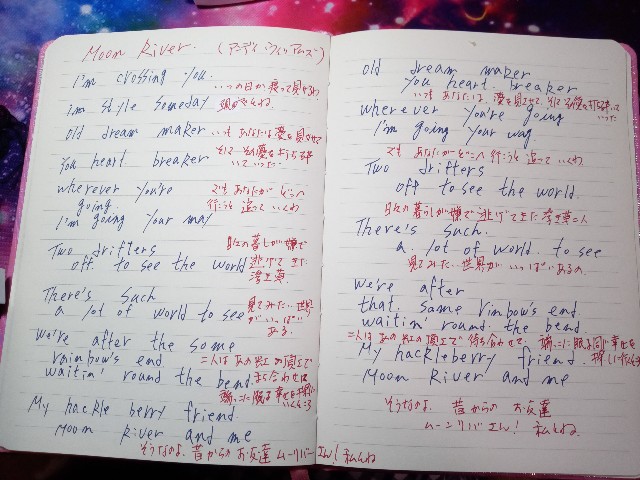 Moon River. (アンディ ウィリアムズ)
I'm crossing you.
いつの日か 渡って見せるわ
in style someday
Old dream maker いつも あなたは 夢を見させて
You heart breaker そして その夢を打ち砕いていった
wherever you're でも あなたが どこへ
going. 行こうと 追って いくわ
I'm going your way
Two drifters 日々の暮しが嫌で
off to see the world 逃げて きた
There's such 見てみたい 世界
a lot of world to see がいっぱい
ある。
We're after the some
rainbow's end 二人は あの 虹の 頂上で
waitin' round the bend
My hackle berry friend
Moon River and me
そうなのよ. 昔からの お友達 ムーンリバー
私とね
old dream maker
You heart breaker
いつも あなたは 夢を見させて、そして その夢を打ち砕いて
いった
wherever you're going
I'm going your way
でも あなたが どこへ 行こうと 追って いくわ
Two drifters
off to see the world.
日々の暮しが嫌で 逃げてきた 二人
There's such.
a lot of world to see
見てみたい 世界が いっぱい あるの.
We're after
that same rinbow's end
waitin' round the bend
二人は あの 虹の 頂上で 待ち合わせて.
My hackleberry friend.
Moon River and me
そうなのよ. 昔からの お友達
ムーンリバー 私とね.